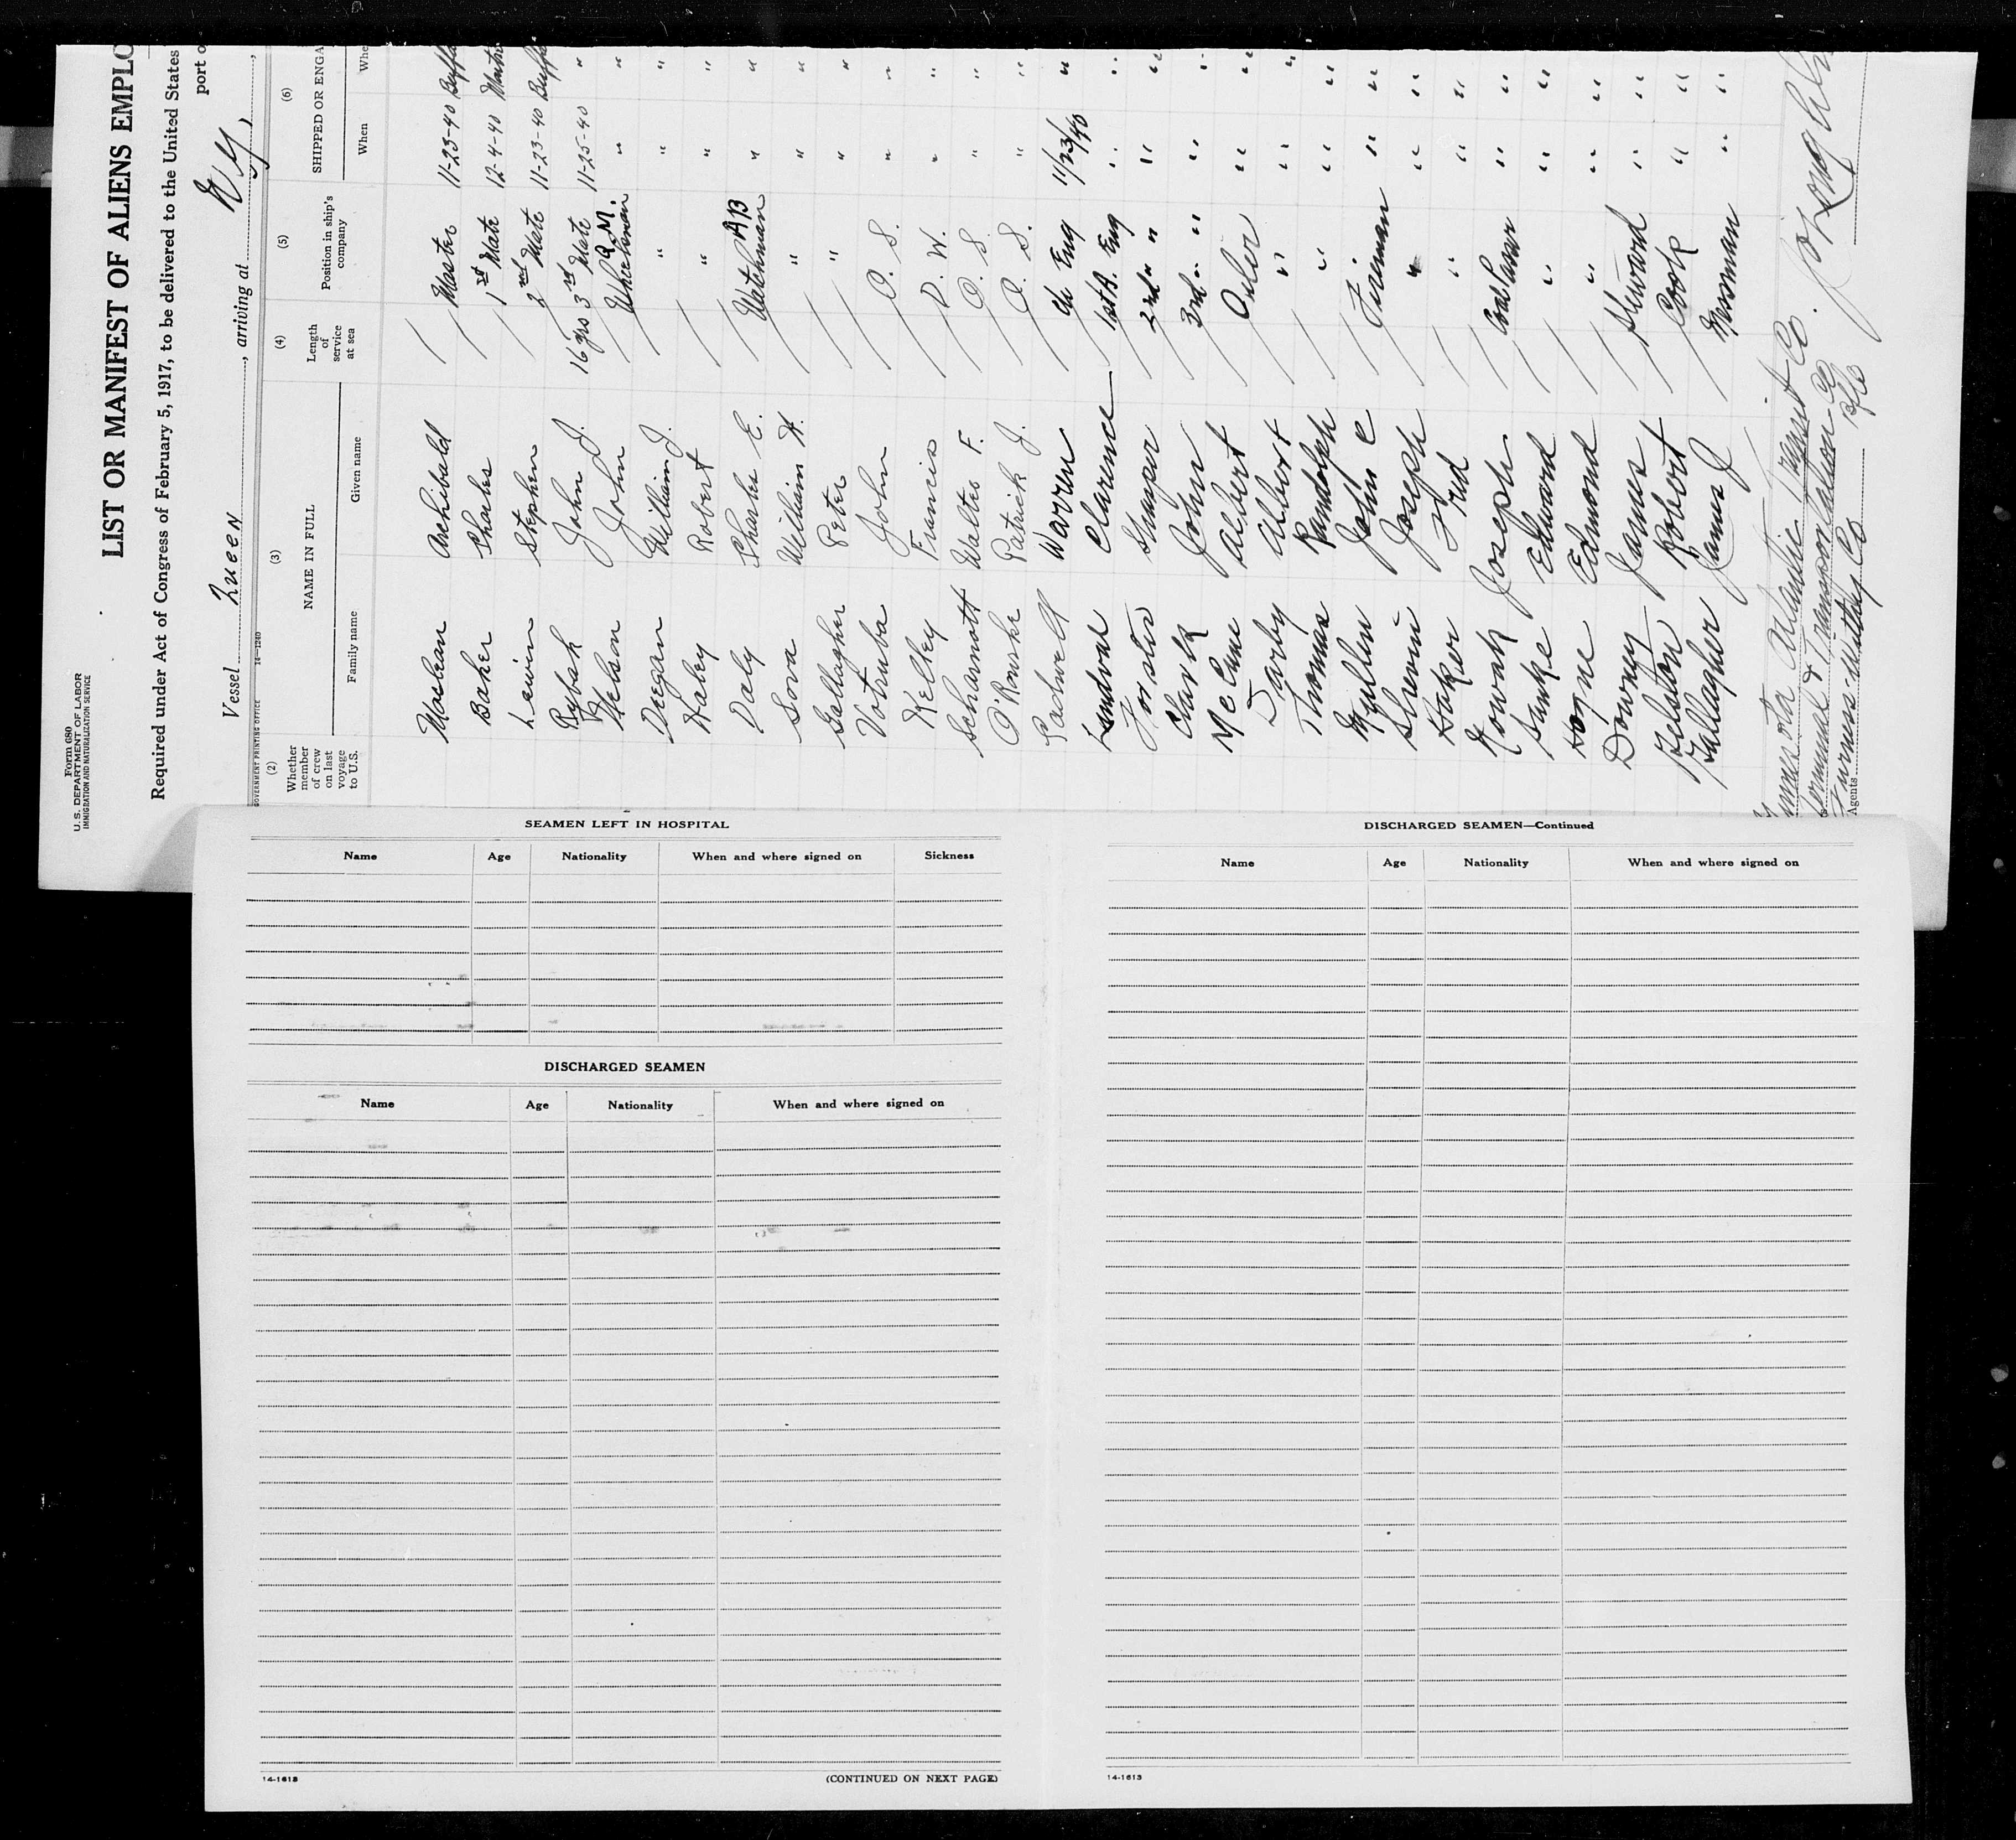 Form 680
U. S. DEPARTMENT OF LABOR
IMMIGRATION AND NATURALIZATION SERVICE
LIST OR MANIFEST OF ALIENS EMPLO
Required under Act of Congress of February 5, 1917, to be delivered to the United States
port o
Vessel Queen, arriving at
GOVERNMENT PRINTING OFFICE 14—1240
(2) (3) (4) (5) (6)
Whether member of crew on last voyage to U.S. NAME IN FULL Length of service at sea Position in ship's company SHIPPED OR ENGA
Family name Given name When Whe
Maclean Archibald / Master 11-23-40 Buffa
Baker Charles / 1st Mate 12-4-40
Lewin Stephen / 2nd Mate 11-23-40 Buffa
Rybak John J. 16 yrs 3rd Mate 11-25-40 "
Nelson John / Q M. Wheelsman " "
Deegan William J. / " " "
Haley Robert / " " "
Daly Charles E. / Watchman AB " "
Sova William H. / " " "
Gallagher Peter / " " "
Votruba John / O. S. " "
Kelley Francis / D. W. " "
Scharnott Walter F. / O. S. " "
O'Rourke Patrick J. / O. S. " "
Gadwell Warren / Ch Eng 11/23/40 "
Clarence 1st A. Eng " "
Forster / 2nd " " " "
Clark John / 3rd " " " "
McCune Albert / Oiler " "
Darby Albert / " " "
Thomas Randolph / " " "
Mullen John C / Fireman " "
Sherwin Joseph / " " "
Haker Fred / " " "
Nowak Joseph / Coal Passer " "
Janke Edward / " " "
Hogne Edmond / " " "
Downey James / Steward " "
Felston Robert / Cook " "
Gallagher James J / Messman " "
Atlantic Transit Co.
Transportation Co
Furness-Withy Co
Agents
SEAMEN LEFT IN HOSPITAL
Name Age Nationality When and where signed on Sickness
DISCHARGED SEAMEN
Name Age Nationality When and where signed on
14-1613 (CONTINUED ON NEXT PAGE)
DISCHARGED SEAMEN—Continued
Name Age Nationality When and where signed on
14-1613